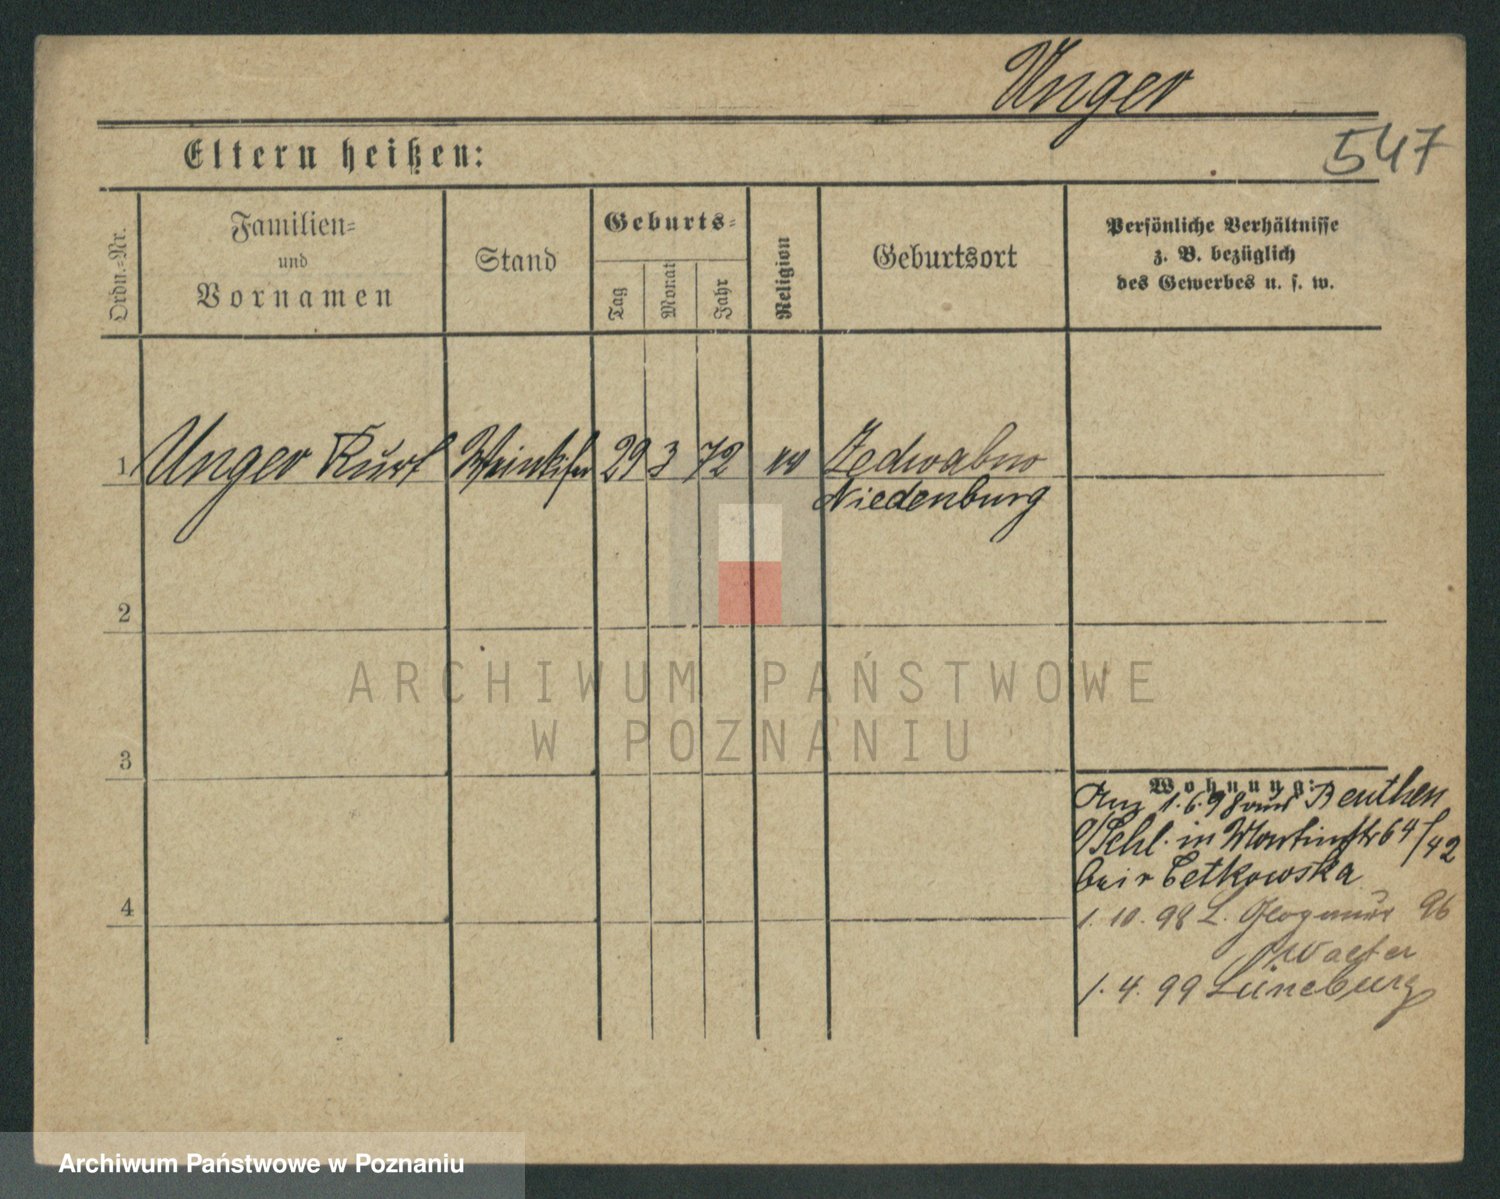 Unger
547
Eltern heißen:
Ordn.-Nr.
Familien-
und
Vornamen
Stand
Geburts-
Tag
Monat
Jahr
Religion
Geburtsort
Persönliche Verhältnisse
z. B. bezüglich
des Gewerbes u. s. w.
1 Unger Kurt 29 3 72 Jedwabno
Niedenburg
2
ARCHIWUM PAŃSTWOWE
W POZNANIU
3
Wohnung:
Anz 1.6.98 aus Beuthen
O/Schl. in Martinstr 64/42
bei Cetkowska
1. 10. 98 L. Glogauer 96
Walter
4
1. 4. 99 Lüneburg
Archiwum Państwowe w Poznaniu